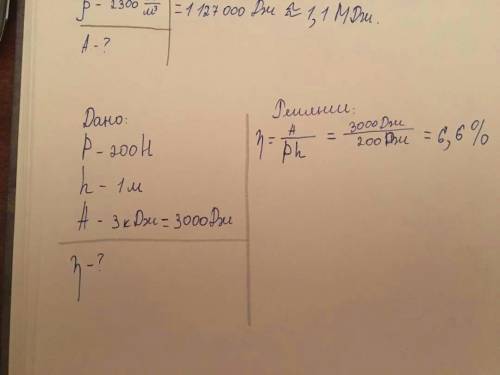 ρ - 2300 /м³ = 1 127 000 Дж ≈ 1,1 МДж.
A - ?
Дано:
P - 200 Н
h - 1 м
A - 3 кДж = 3000 Дж
η - ?
Решение:
η = A/Ph = 3000 Дж/200 Дж = 6,6 %